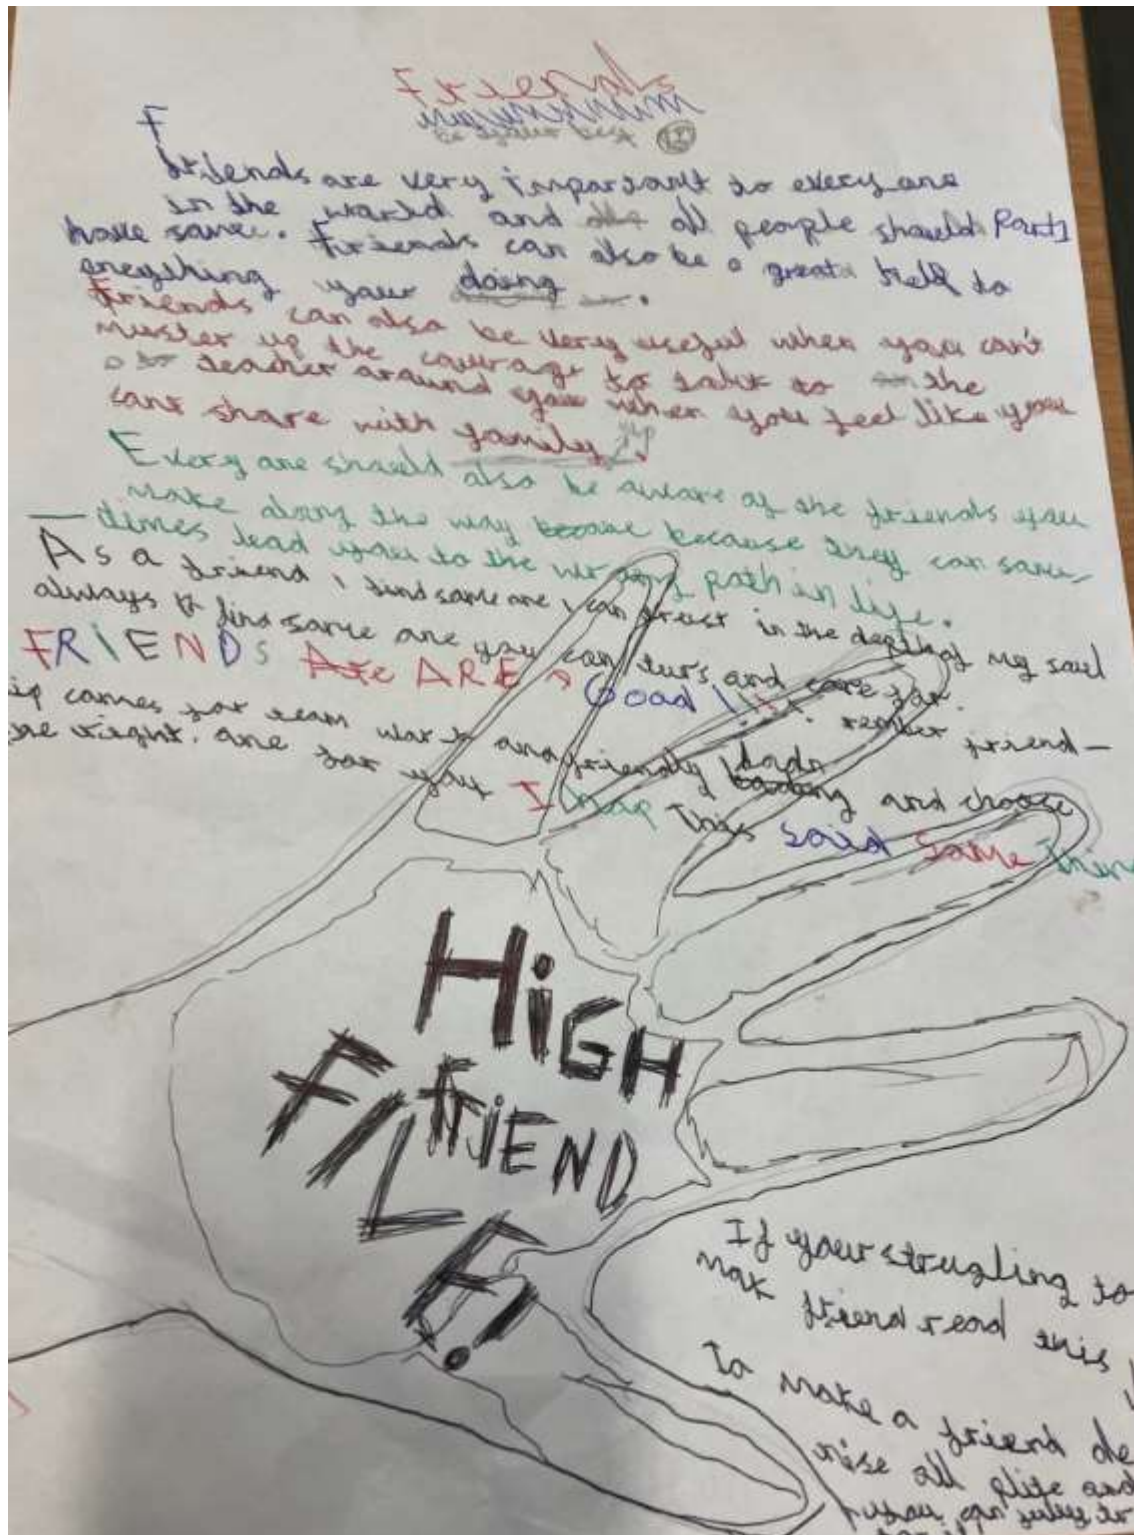 Friends
be your best
F
friends are very important to every one
in the world and all people should Part1
have some. friends can also be a great help to
eneything your doing.
friends can also be very useful when you can't
muster up the courage to talk to the
teacher around you when you feel like you
cant share with family.
Every one should also be aware of the friends you
make along the way because they can some-
times lead you to the wrong path in life.
As a friend i find some one i can trust in the depth of my soul
always find some one you can and care for.
FRIENDS ARE Good!!! rember friend-
ip comes for team work and friendly and choose
he right one for you I hop this said some thin
HIGH
FRIEND
FILE!
If your strugling to
mak friend read this
To make a friend de
nise all plite and
you can